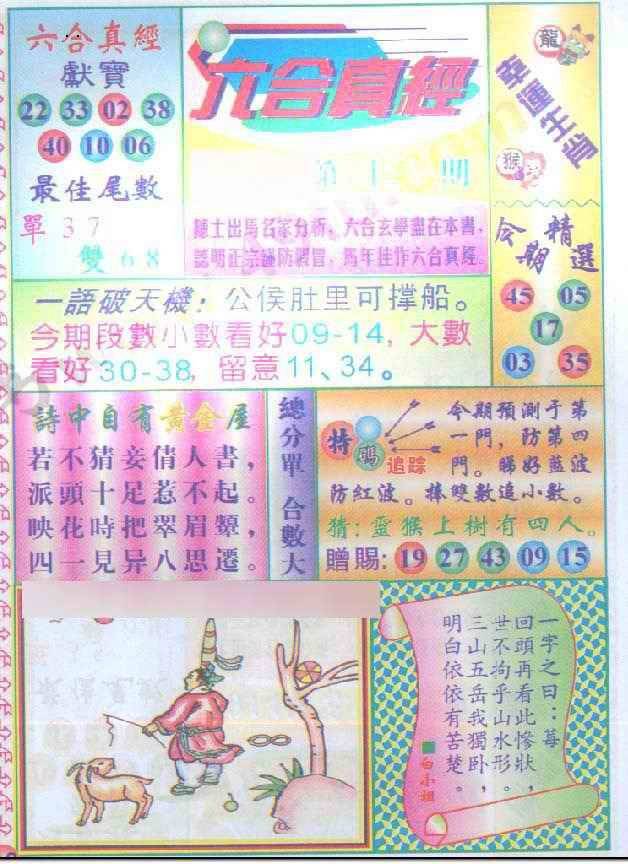 六合真經
獻寶
22 33 02 38
40 10 06
最佳尾數
單 3 7
雙 6 8
六合真經
第 期
隱士出馬名家分析，六合玄學盡在本書，
認明正宗謹防假冒，馬年佳作六合真經。
龍
幸運生肖
猴
今期精選
45 05
17
03 35
一語破天機：公侯肚里可撑船。
今期段數小數看好09-14，大數
看好30-38，留意11、34。
詩中自有黃金屋
若不猜妾倩人書，
派頭十足惹不起。
映花時把翠眉顰，
四一見异八思遷。
總分單 合數大
特碼
追踪
今期預測于第
一門，防第四
門。睇好藍波
防紅波。捧雙數追小數。
猜：靈猴上樹有四人。
贈賜：19 27 43 09 15
一字之曰：莓
回頭再看此慘狀，
世不拘乎山水形。
三山五岳我獨卧，
明白依依有苦楚。
白小姐